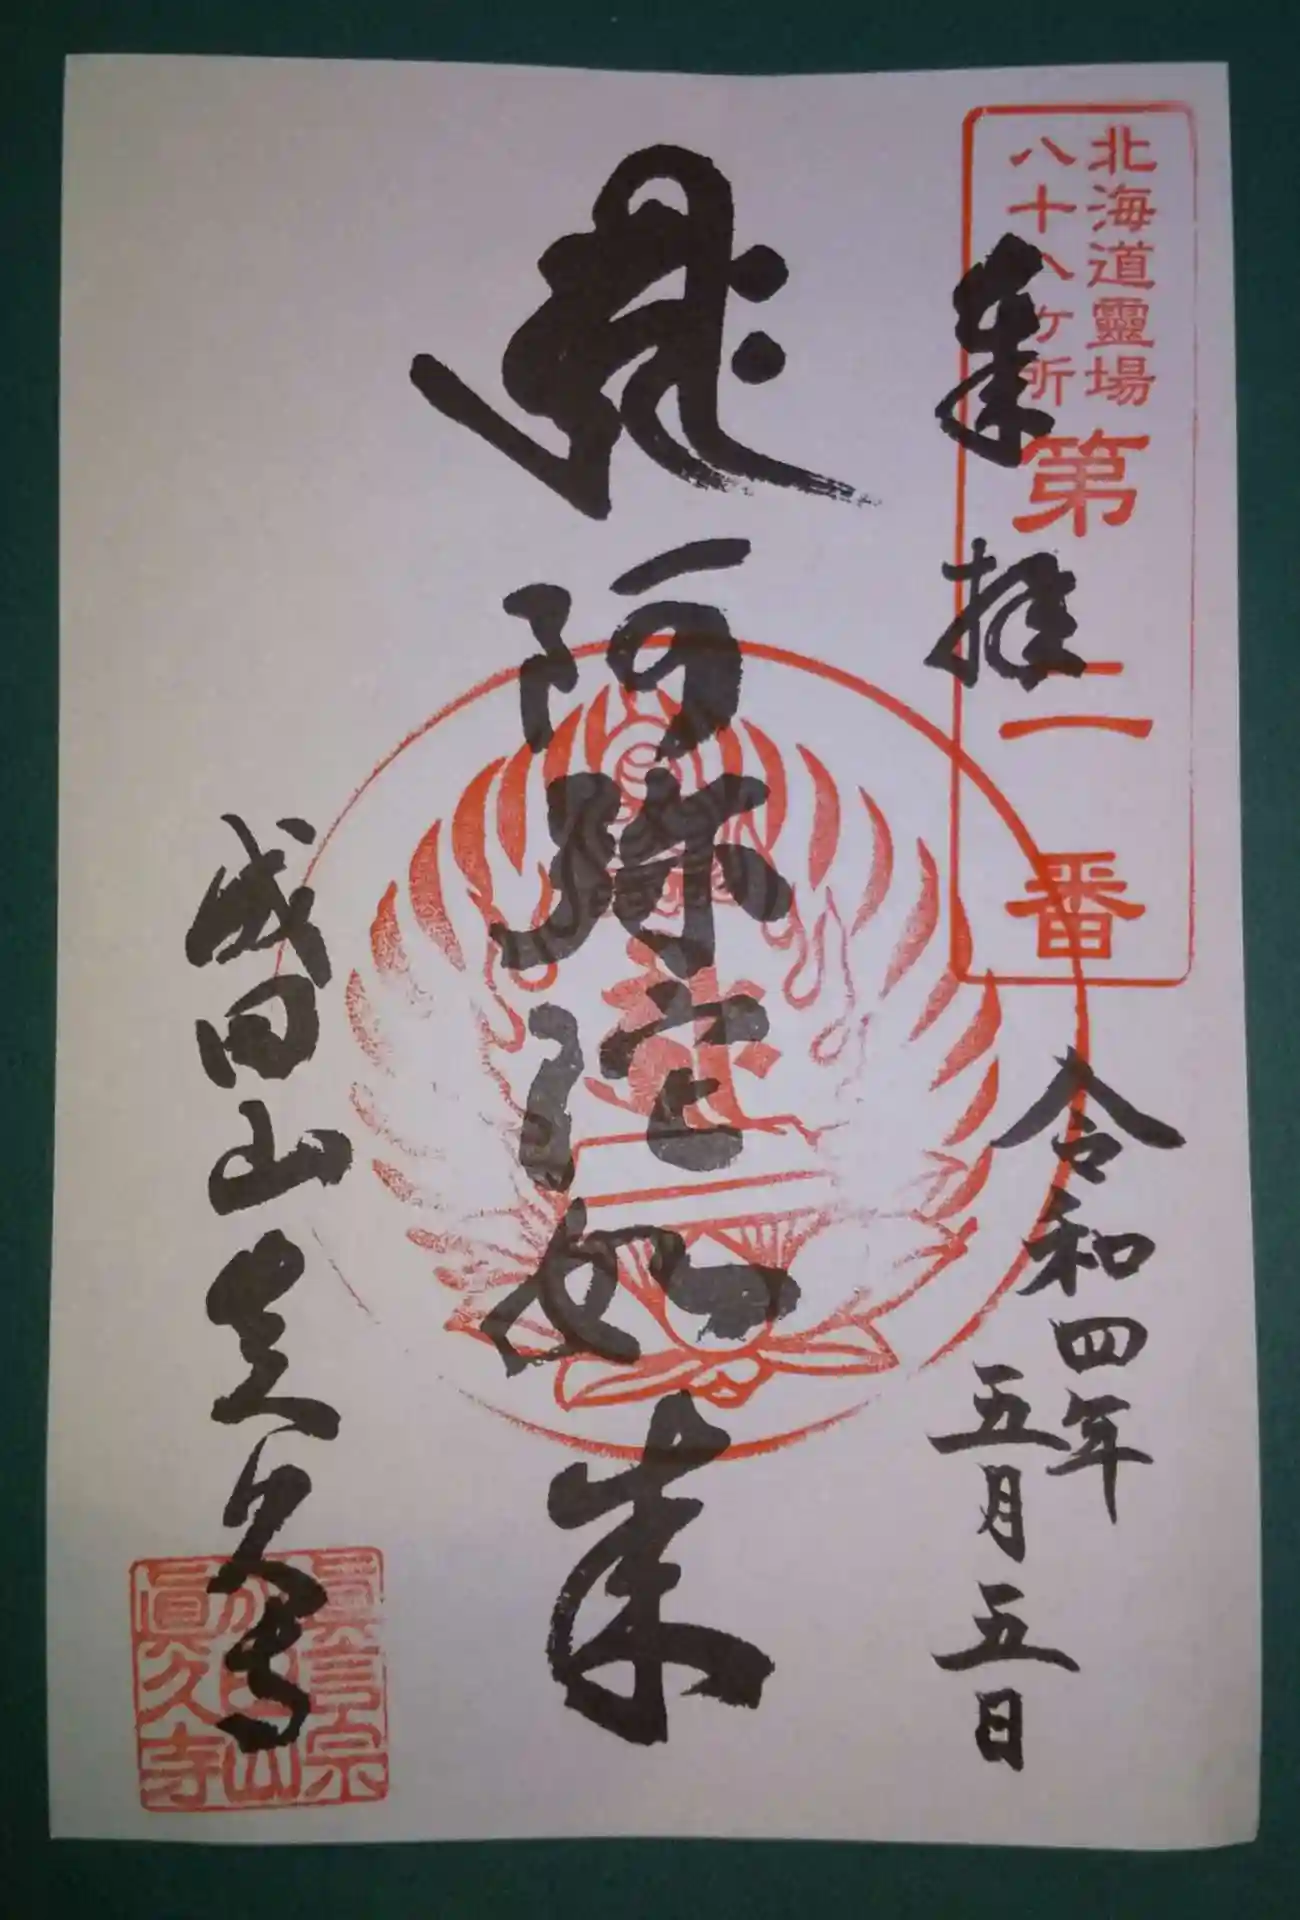 北海道靈場
八十八ヶ所
第二番
奉拝
令和四年
五月五日
阿弥陀如来
成田山真久寺
眞言宗
成田山
眞久寺